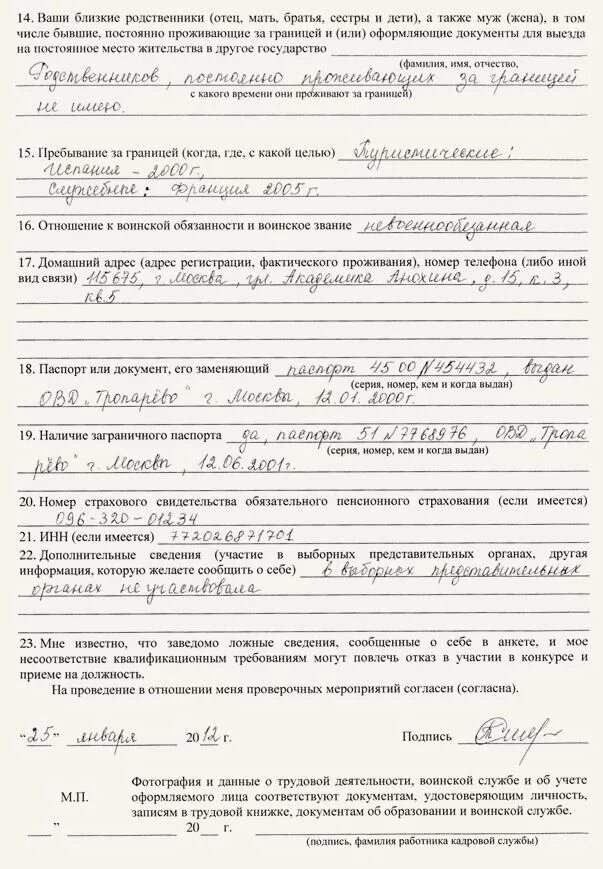 14. Ваши близкие родственники (отец, мать, братья, сестры и дети), а также муж (жена), в том
числе бывшие, постоянно проживающие за границей и (или) оформляющие документы для выезда
на постоянное место жительства в другое государство
(фамилия, имя, отчество,
Родственников, постоянно проживающих за границей
с какого времени они проживают за границей)
не имею.
15. Пребывание за границей (когда, где, с какой целью) Туристические:
Испания – 2000 г.,
Служебные: Франция 2005 г.
16. Отношение к воинской обязанности и воинское звание невоеннообязанная
17. Домашний адрес (адрес регистрации, фактического проживания), номер телефона (либо иной
вид связи) 115675, г. Москва, ул. Академика Анохина, д. 15, к. 3,
кв. 5
18. Паспорт или документ, его заменяющий паспорт 45 00 N 454432, выдан
(серия, номер, кем и когда выдан)
ОВД „Тропарёво" г. Москвы, 12.01.2000 г.
19. Наличие заграничного паспорта да, паспорт 51 N 7768976, ОВД „Тропа
(серия, номер, кем и когда выдан)
рёво" г. Москвы, 12.06.2001 г.
20. Номер страхового свидетельства обязательного пенсионного страхования (если имеется)
096-320-01234
21. ИНН (если имеется) 772026871701
22. Дополнительные сведения (участие в выборных представительных органах, другая
информация, которую желаете сообщить о себе) в выборных представительных
органах не участвовала
23. Мне известно, что заведомо ложные сведения, сообщенные о себе в анкете, и мое
несоответствие квалификационным требованиям могут повлечь отказ в участии в конкурсе и
приеме на должность.
На проведение в отношении меня проверочных мероприятий согласен (согласна).
“25” января 2012 г. Подпись
Фотография и данные о трудовой деятельности, воинской службе и об учете
М.П. оформляемого лица соответствуют документам, удостоверяющим личность,
записям в трудовой книжке, документам об образовании и воинской службе.
” 20 г.
(подпись, фамилия работника кадровой службы)